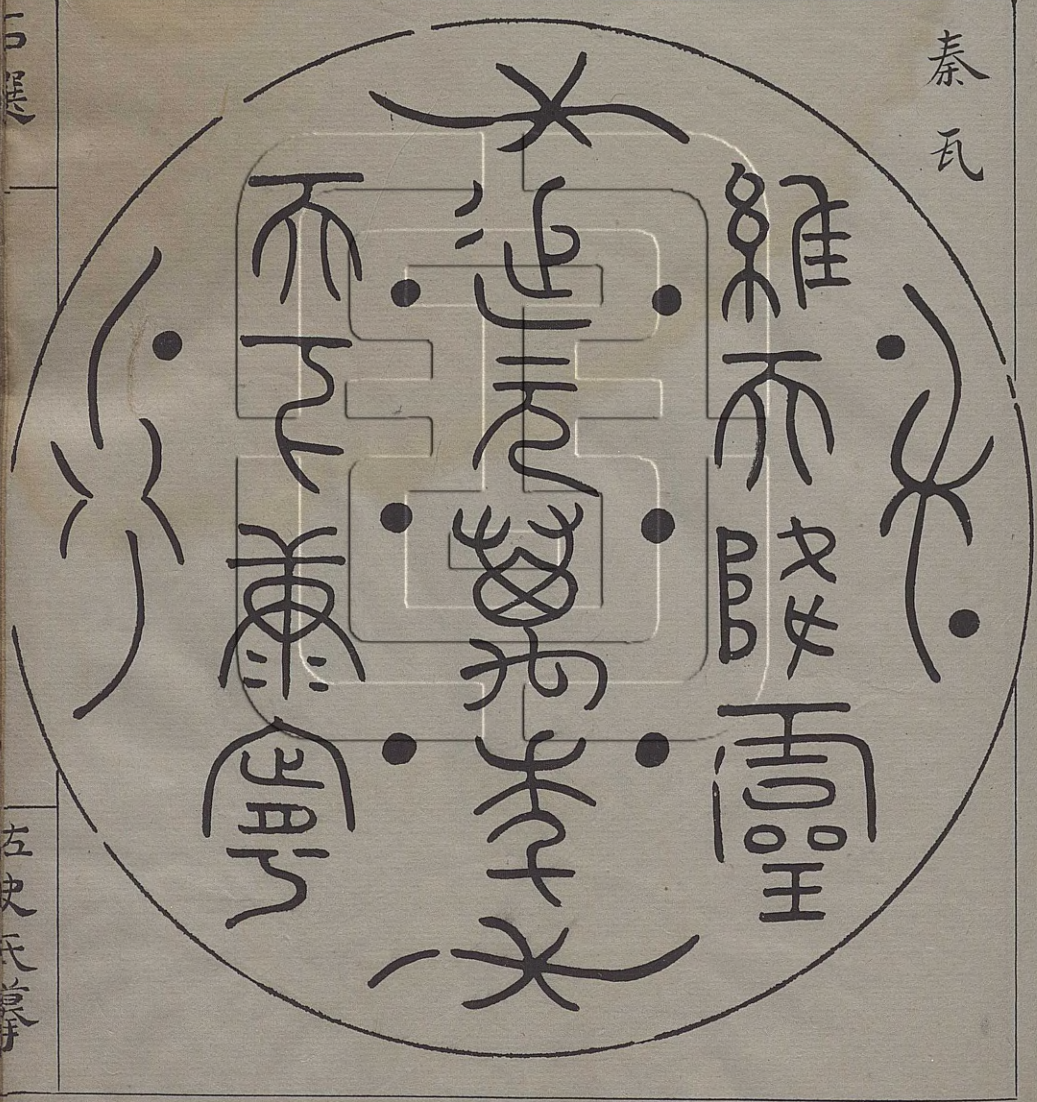 秦瓦
維天降靈
延元萬年
天下康寧
石選
左史氏摹